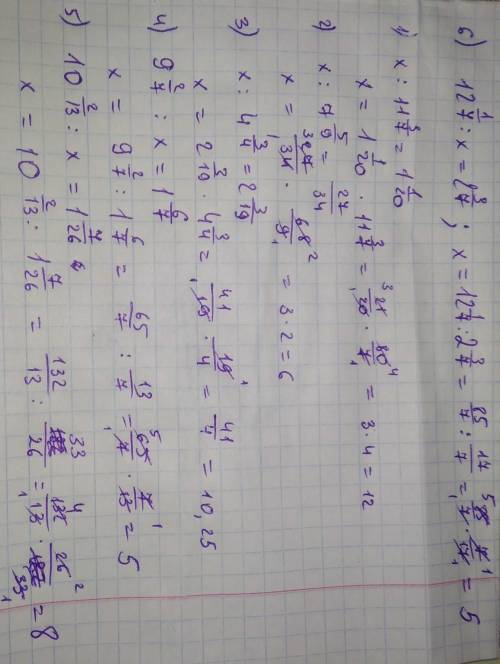 6) 12 1/7 : x = 2 3/7 ; x = 12 1/7 : 2 3/7 = 85/7 : 17/7 = 85/7 · 7/17 = 5
1) x : 11 3/7 = 1 1/20
x = 1 1/20 · 11 3/7 = 21/20 · 80/7 = 3 · 4 = 12
2) x : 7 5/9 = 27/34
x = 27/34 · 68/9 = 3 · 2 = 6
3) x : 4 3/4 = 2 3/19
x = 2 3/19 · 4 3/4 = 41/19 · 19/4 = 41/4 = 10,25
4) 9 2/7 : x = 1 6/7
x = 9 2/7 : 1 6/7 = 65/7 : 13/7 = 65/7 · 7/13 = 5
5) 10 2/13 : x = 1 7/26
x = 10 2/13 : 1 7/26 = 132/13 : 33/26 = 132/13 · 26/33 = 8